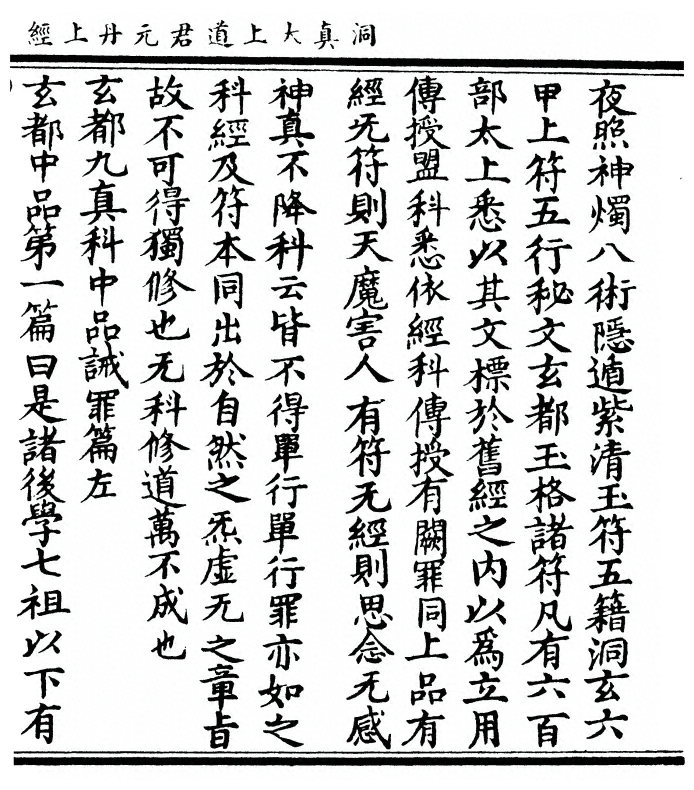 洞真太上道君元丹上經
夜照神燭八術隱遁紫清玉符五籍洞玄六
甲上符五行秘文玄都玉格諸符凡有六百
部太上悉以其文標於舊經之內以為立用
傳授盟科悉依經科傳授有闕罪同上品有
經无符則天魔害人有符无經則思念无感
神真不降科云皆不得單行單行罪亦如之
科經及符本同出於自然之炁虛无之章旨
故不可得獨修也无科修道萬不成也
玄都九真科中品誡罪篇左
玄都中品第一篇曰是諸後學七祖以下有